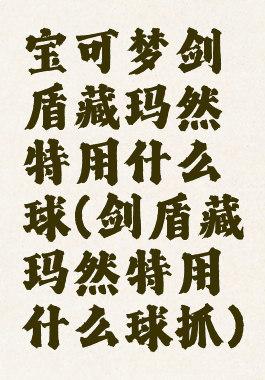 宝可梦剑
盾藏玛然
特用什么
球(剑盾藏
玛然特用
什么球抓)